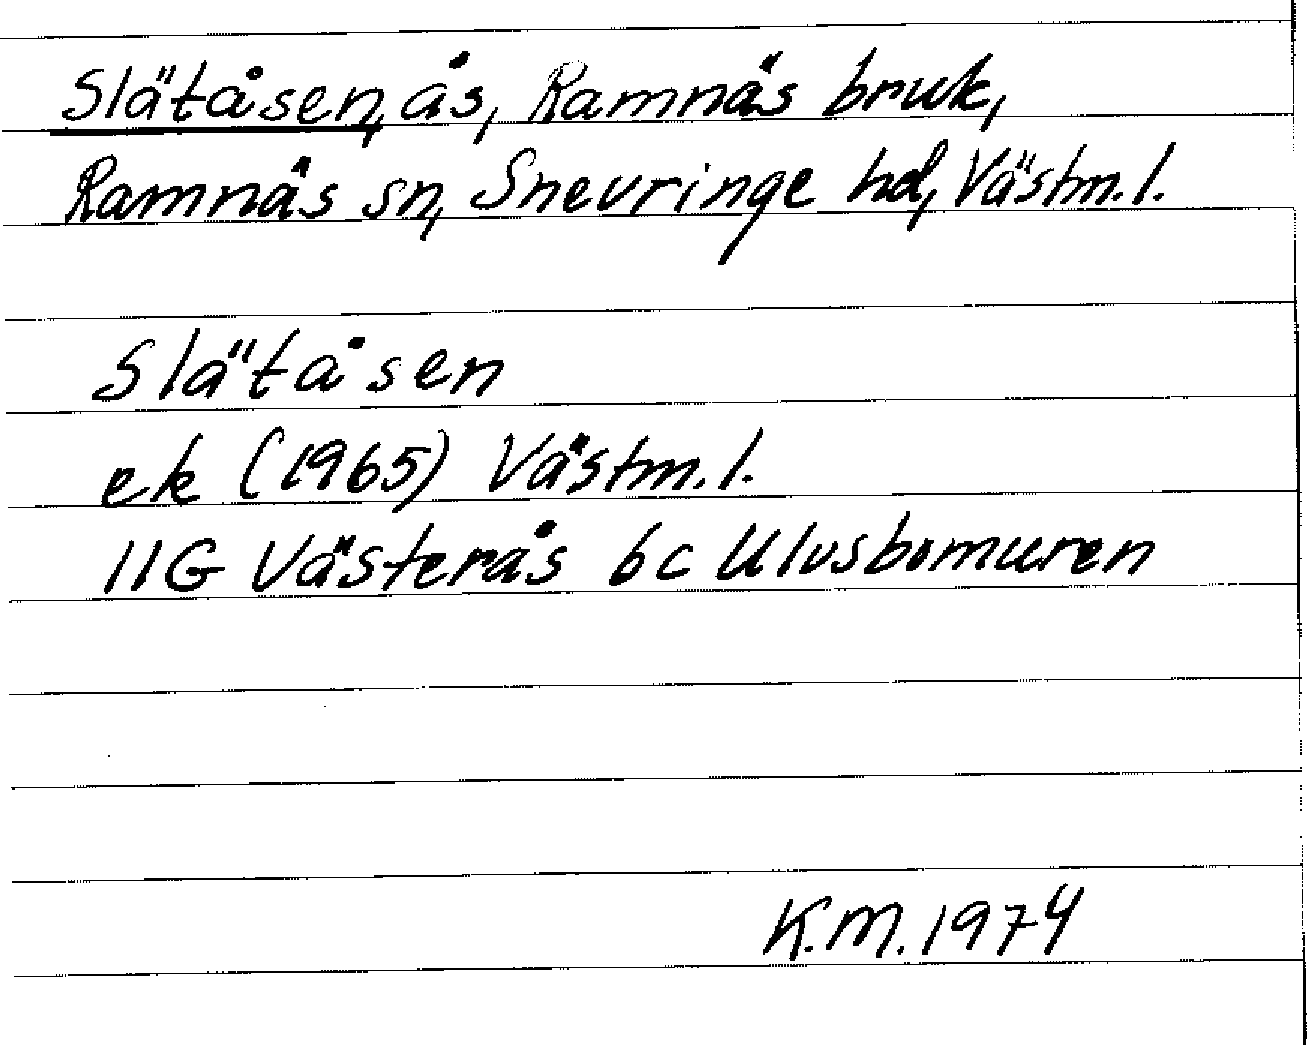 Slätåsen, ås, Ramnäs bruk,
Ramnäs sn, Snevringe hd, Västm. l.
Slätåsen
ek (1965) Västm. l.
11G Västerås 6c Ulvsbomuren
K.M. 1974